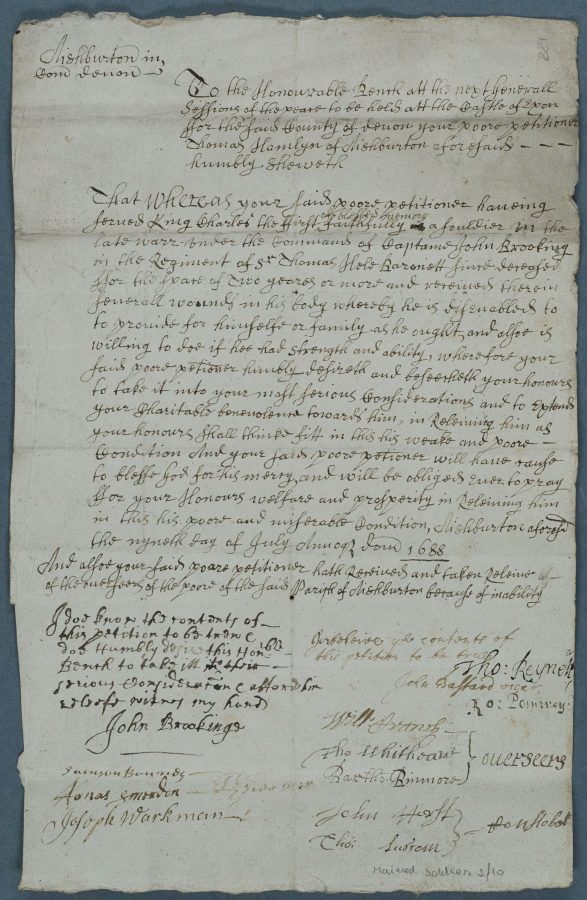 Aishburton in
Com devon
221
To the Honourable Bench att the next Generall
Sessions of the peace to be held att the Castle of Exon
ffor the said County of Devon your poore petitioner
Thomas Hamlyn of Aishburton aforesaid
humbly sheweth
That Whereas your said poore petitioner haveing
of blessed memory
served King Charles the first faithfully as a souldier in the
late warr under the Command of Captane John Brooking
in the Regiment of Sr Thomas Hele Baronett since deceased
ffor the space of Two yeares or more and received therein
severall wounds in his body whereby he is disenabled to
to provide for himselfe or family as he ought and alsoe is
willing to doe if hee had strength and ability, wherefore your
said poore petioner humbly desireth and beseecheth your honours
to take it into your most serious Considerations and to Extend
your Charitable benevolence towards him, in Releiving him as
your honours shall thinke fitt in this his weake and poore
Condition And your said poore petioner will have cause
to blesse God for his mercy, and will be obliged Ever to pray
ffor your Honours welfare and prosperity in Releiving him
in this his poore and miserable Condition, Aishburton aforesd
the nyneth day of July Annoq dom 1688
And alsoe your said poore petitioner hath Received and taken Releive
of the overseers of the poore of the said Parish of Aishburton because of inability
I doe know the contents of
this petition to be trew &
doe humbly desire this Honble
Bench to take itt in their
serious Consideration & afford him
releefe witnes my hand
John Brookinge
contents of
this petition to be true
Tho: Reynell
John Bastard
Ro: Pomeroy
Will ffranch
Tho Whiteare
Barth: Rinmore
overseers
Samson
Jonas Emerdon
Joseph Warkman
John
Tho:
Constabl
Maimed Soldiers 3/10